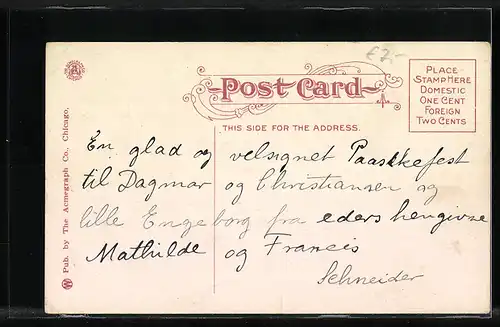 €7-
POST CARD
PLACE
STAMP HERE
DOMESTIC
ONE CENT
FOREIGN
TWO CENTS
THIS SIDE FOR THE ADDRESS.
En glad og velsignet Paaskefest
til Dagmar og Christiansen og
lille Engeborg fra eders hengivne
Mathilde og Francis
Schneider
Pub. by The Acmegraph Co., Chicago.